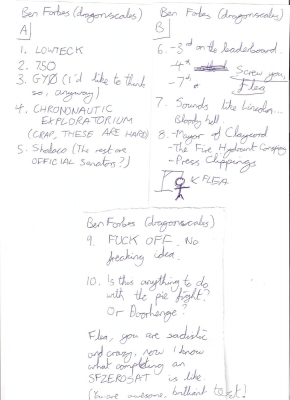 Ben Forbes (dragonscales)
A]
1. LOWTECK
2. 7SO
3. GYØ (I'd like to think
so, anyway)
4. CHRONONAUTIC
EXPLORATORIUM
(CRAP, THESE ARE HARD)
5. Shaboco (The rest are
OFFICIAL senators?)
Ben Forbes (dragonscales)
B]
6. -3rd on the leaderboard.
-4th
-7th.
Screw you,
Flea
7. Sounds like Lincoln...
Bloody hell
8. -Mayor of Claycord
-The Fire Hydrant Conspiracy
-Press Clippings
FLEA
Ben Forbes (dragonscales)
9. FUCK OFF. No
freaking idea.
10. Is this anything to do
with the pie fight?
Or Doorhenge?
Flea, you are sadistic
and crazy, now I know
what completing an
SFZEROSAT is like.
(You are awesome, brilliant test!